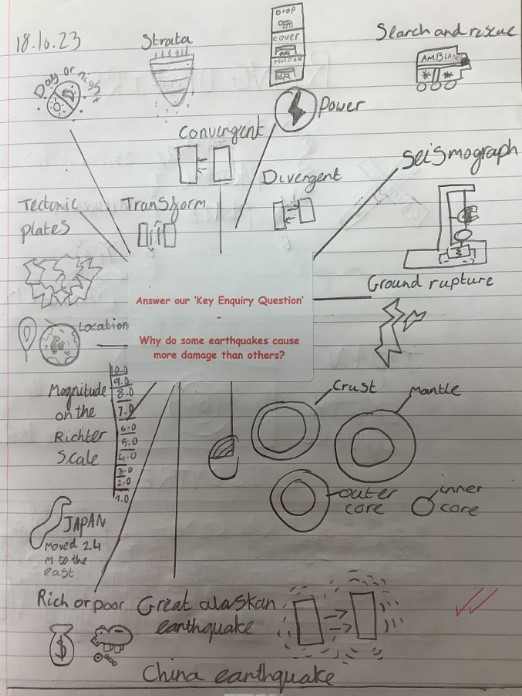 18.10.23
Strata
Drop
cover
Search and rescue
AMBIAN
Day or nig
Power
Convergent
Seismograph
Divergent
Tectonic
plates
Transform
Ground rupture
Answer our 'Key Enquiry Question'
-
Why do some earthquakes cause
more damage than others?
Location
Magnitude
on the
Richter
Scale
10.0
9.0
8.0
7.0
6.0
5.0
4.0
3.0
2.0
1.0
Crust
Mantle
outer
core
inner
core
JAPAN
Moved 2.4
M to the
east
Rich or poor
Great alaskan
earthquake
$
China earthquake